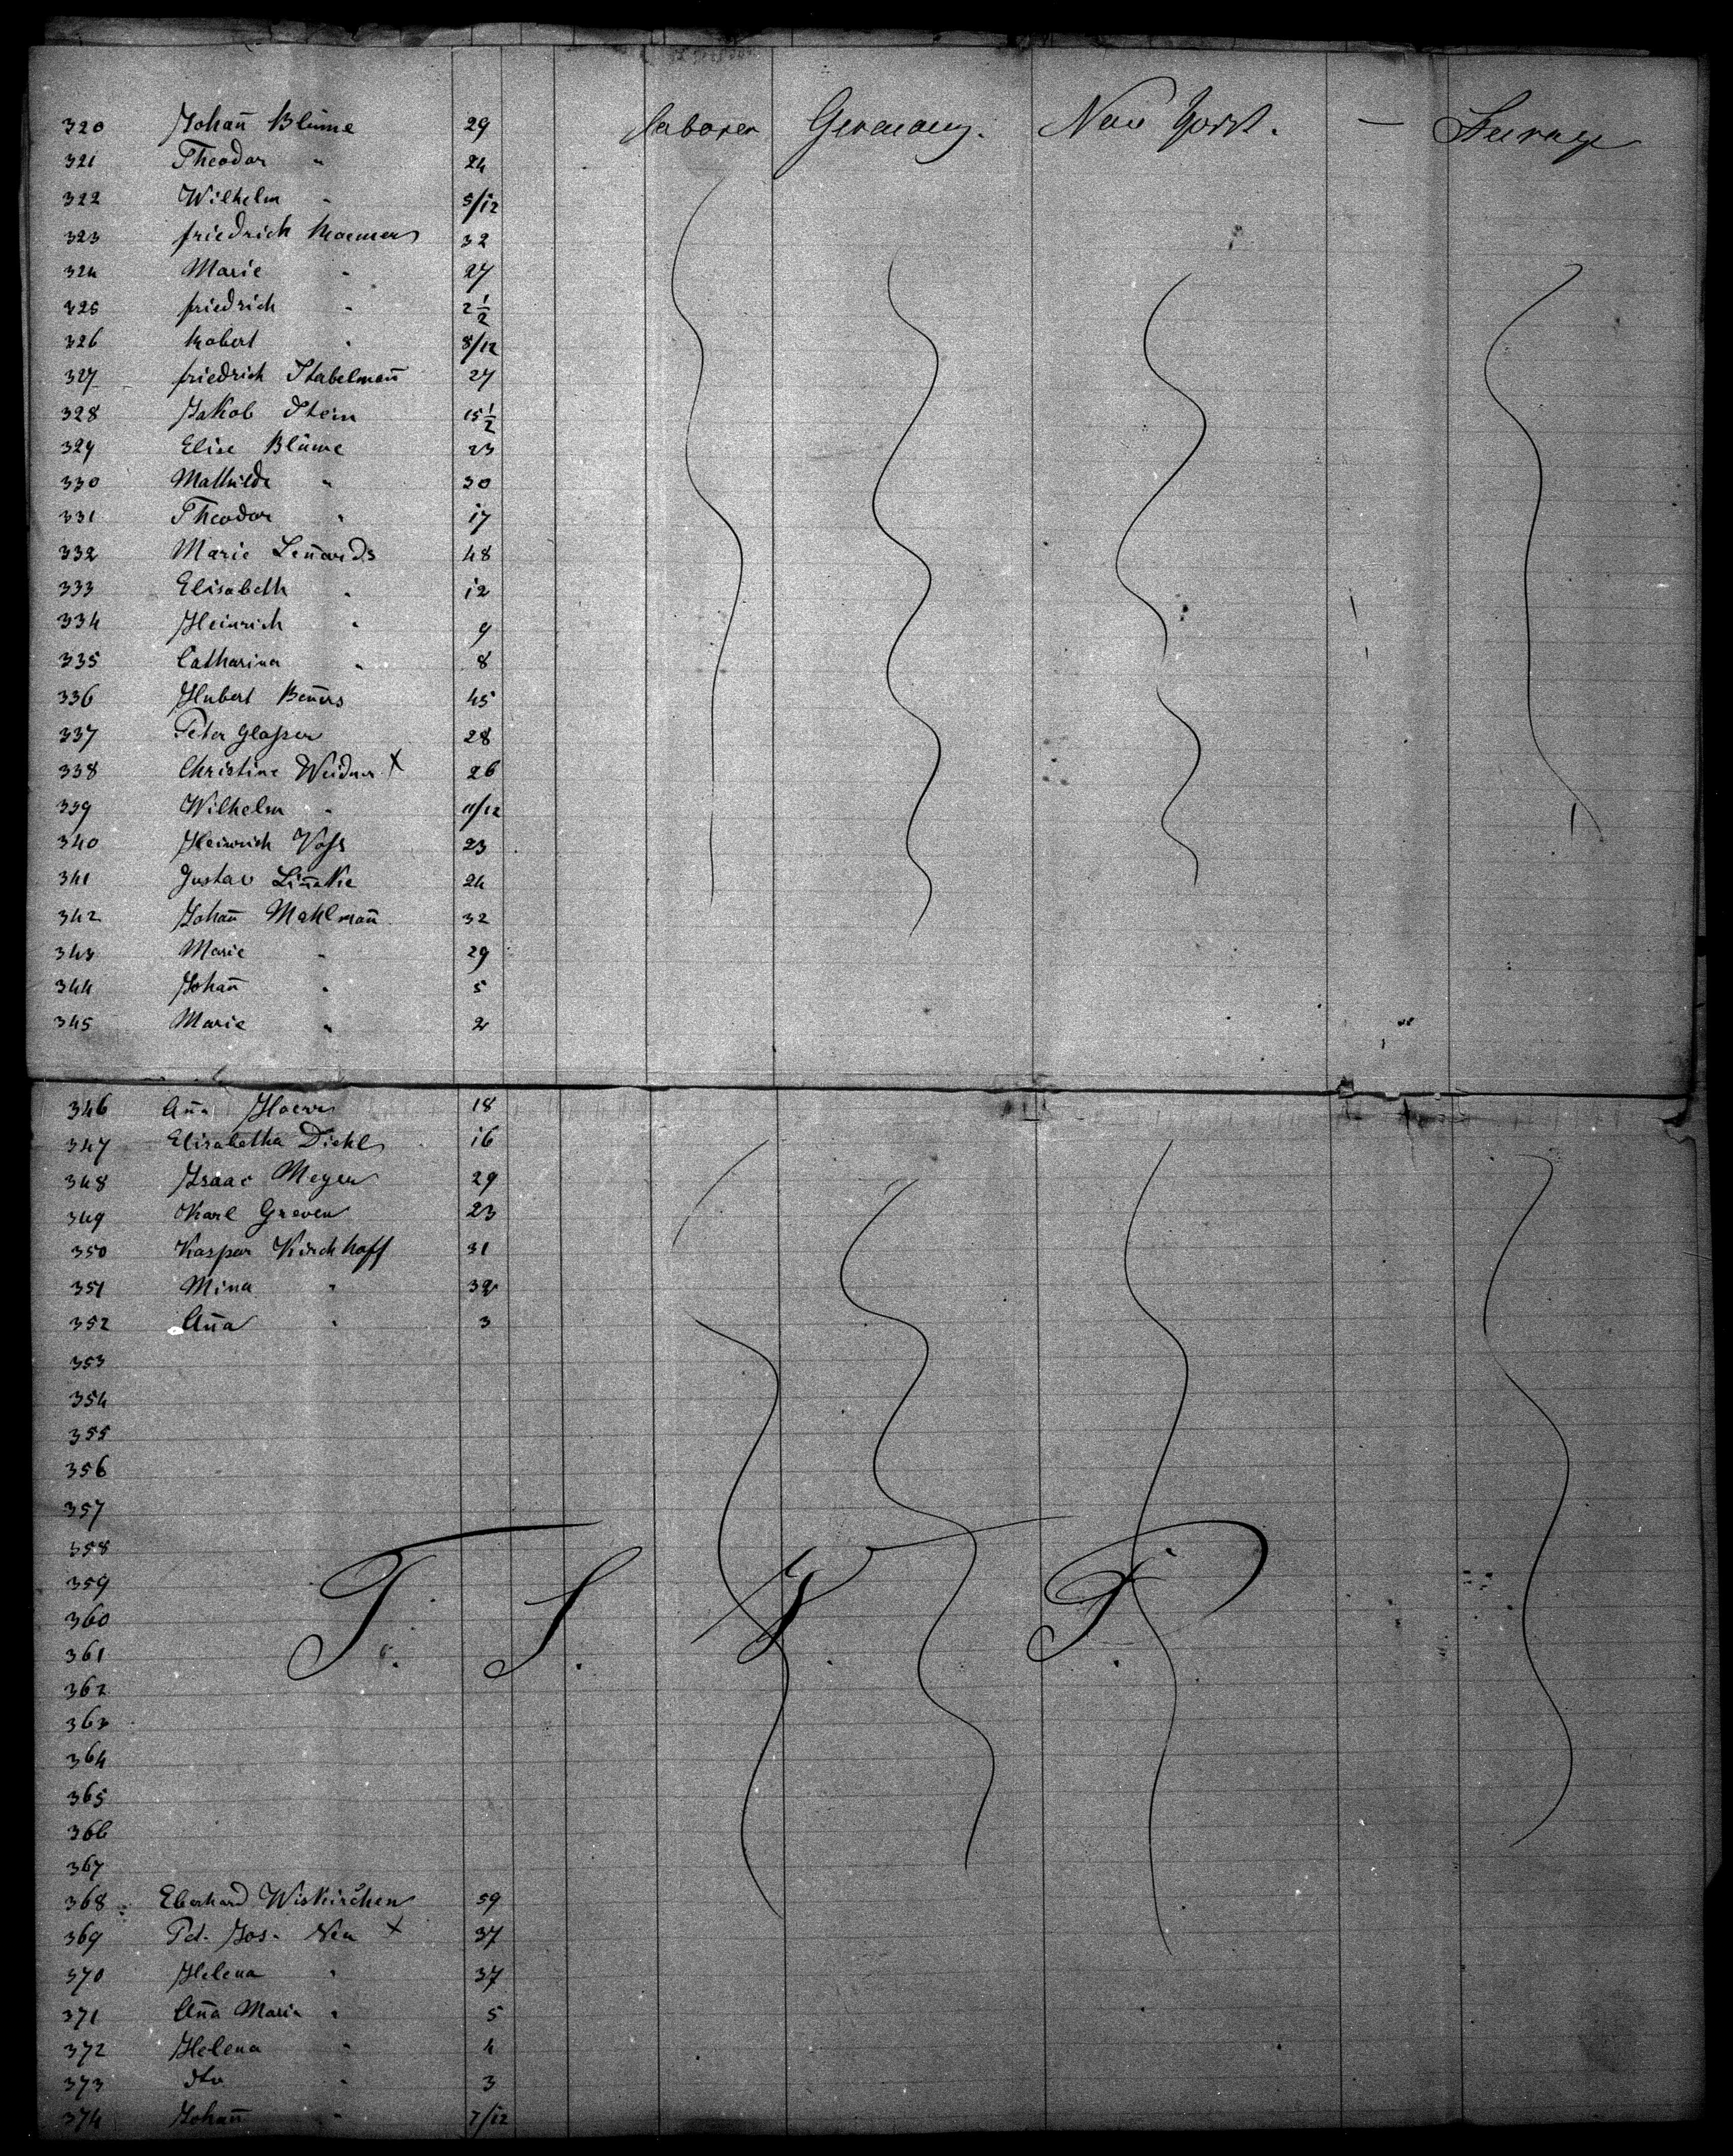 320 Johan̄ Blūme 29 laborer Germany. New York. — Steerage
321 Theodor " 24
322 Wilhelm " 5/12
323 friedrich 32
324 Marie " 27
325 friedrich " 2 1/2
326 Robert " 8/12
327 friedrich Stabelman̄ 27
328 Jakob Stein 15 1/2
329 Elise Blūme 23
330 Mathilde " 30
331 Theodor " 17
332 Marie Len̄ards 48
333 Elisabeth " 12
334 Heinrich " 9
335 Catharina " 8
336 Hubert Ben̄ers 45
337 Peter Glaßer 28
338 Christine Weidner X 26
339 Wilhelm " 11/12
340 Heinrich Voß 23
341 Gustav Lin̄ekie 24
342 Johan̄ Mahlman̄ 32
343 Marie " 29
344 Johan̄ " 5
345 Marie " 2
346 An̄a 18
347 Elisabetha Diehl 16
348 Isaac Meyer 29
349 Karl Greven 23
350 Kaspar Kirchhoff 31
351 Mina " 32
352 An̄a " 3
353
354
355
356
357
358
359
360 T. S. V. P.
361
362
363
364
365
366
367
368 Eberhard Wiskirchen 59
369 Pet. Jos. Neu X 37
370 Helena " 37
371 An̄a Maria " 5
372 Helena " 4
373 dto " 3
374 Johan̄ " 7/12